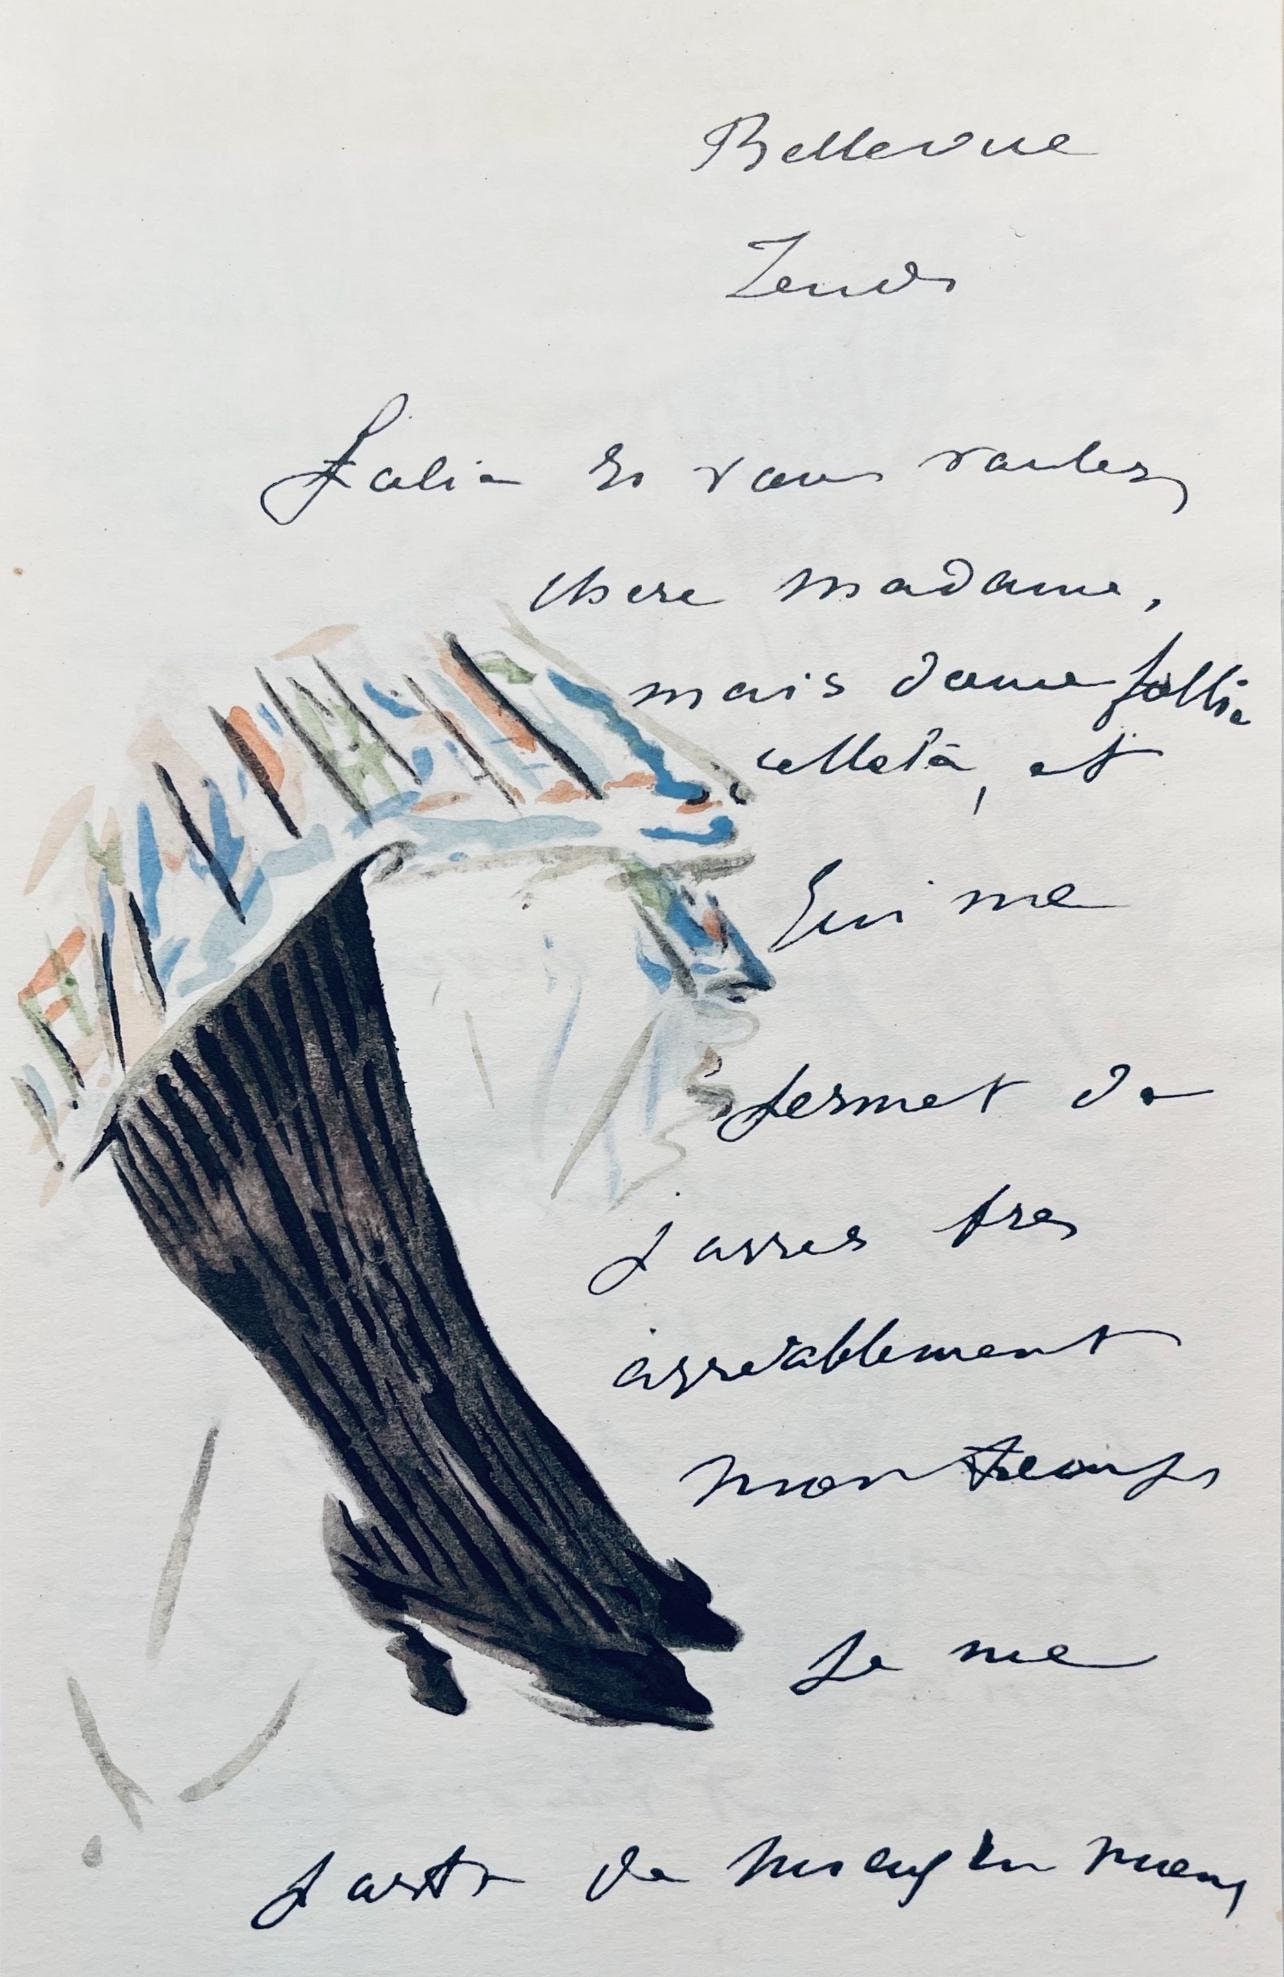 Bellevue
Jeudi
folie si vous voulez,
chere madame,
mais douce folie
celle là, et
qui me
permet de
passer tres
agréablement
mon temps
je me
porte de mieux en mieux